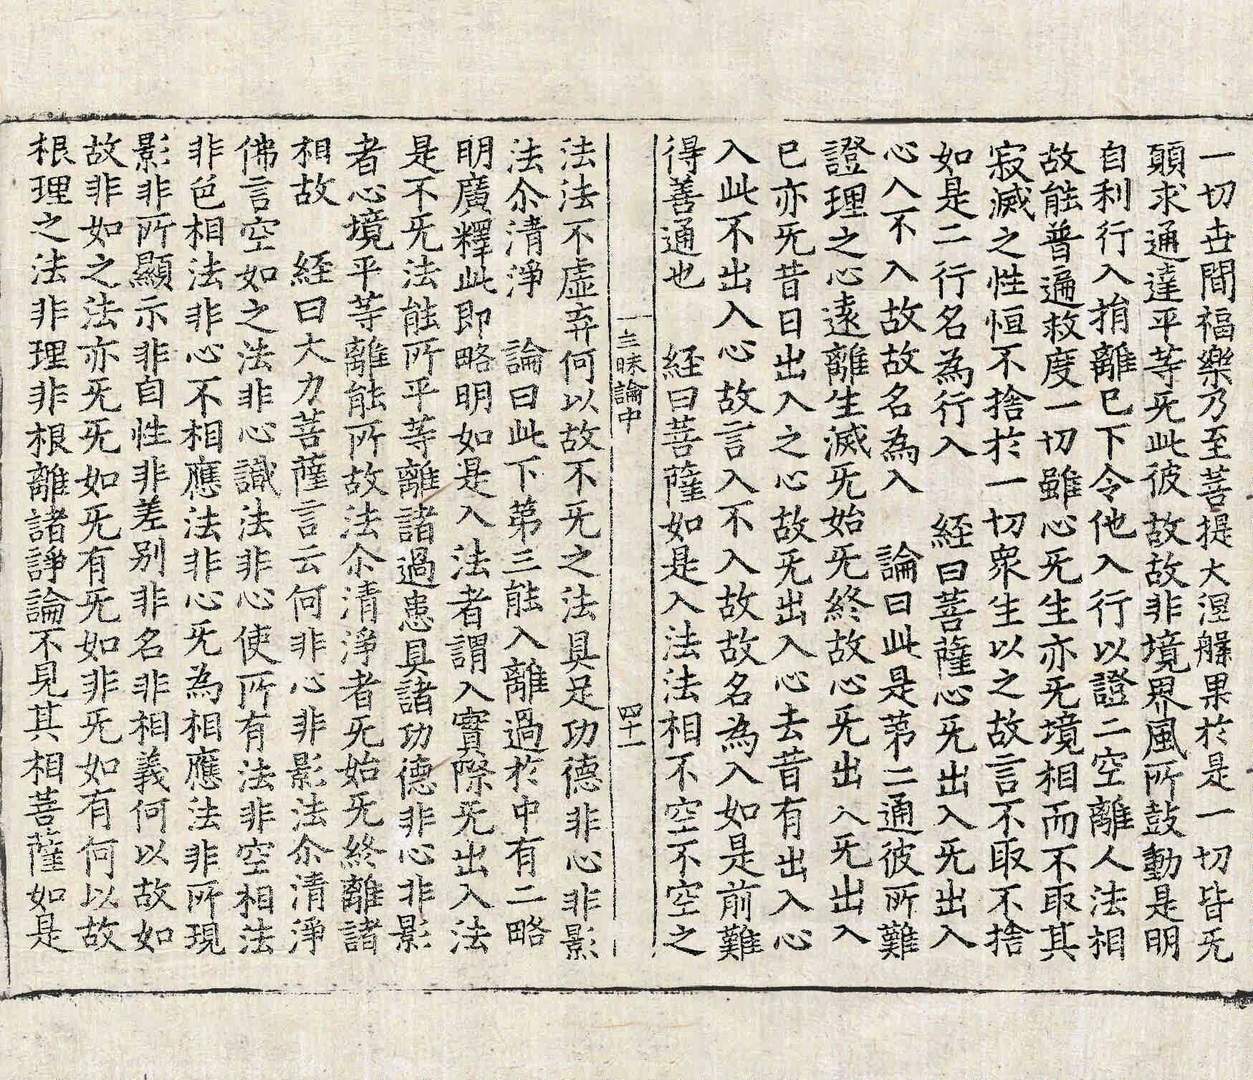 一切世間福樂乃至菩提大涅槃果於是一切皆旡
願求通達平等旡此彼故故非境界風所鼓動是明
自利行入捎離已下令他入行以證二空離人法相
故能普遍救度一切雖心旡生亦旡境相而不取其
寂滅之性恒不捨於一切衆生以之故言不取不捨
如是二行名為行入　経曰菩薩心旡出入旡出入
心入不入故故名為入　論曰此是第二通彼所難
證理之心遠離生滅旡始旡終故心旡出入旡出入
已亦旡昔日出入之心故旡出入心去昔有出入心
入此不出入心故言入不入故故名為入如是前難
得善通也　経曰菩薩如是入法法相不空不空之
三昧論中　四十一
法法不虛弃何以故不旡之法具足功德非心非影
法尒清淨　論曰此下第三能入離過於中有二略
明廣釋此即略明如是入法者謂入實際旡出入法
是不旡法能所平等離諸過患具諸功德非心非影
者心境平等離能所故法尒清淨者旡始旡終離諸
相故　経曰大力菩薩言云何非心非影法尒清淨
佛言空如之法非心識法非心使所有法非空相法
非色相法非心不相應法非心旡為相應法非所現
影非所顯示非自性非差别非名非相義何以故如
故非如之法亦旡旡如旡有旡如非旡如有何以故
根理之法非理非根離諸諍論不見其相菩薩如是